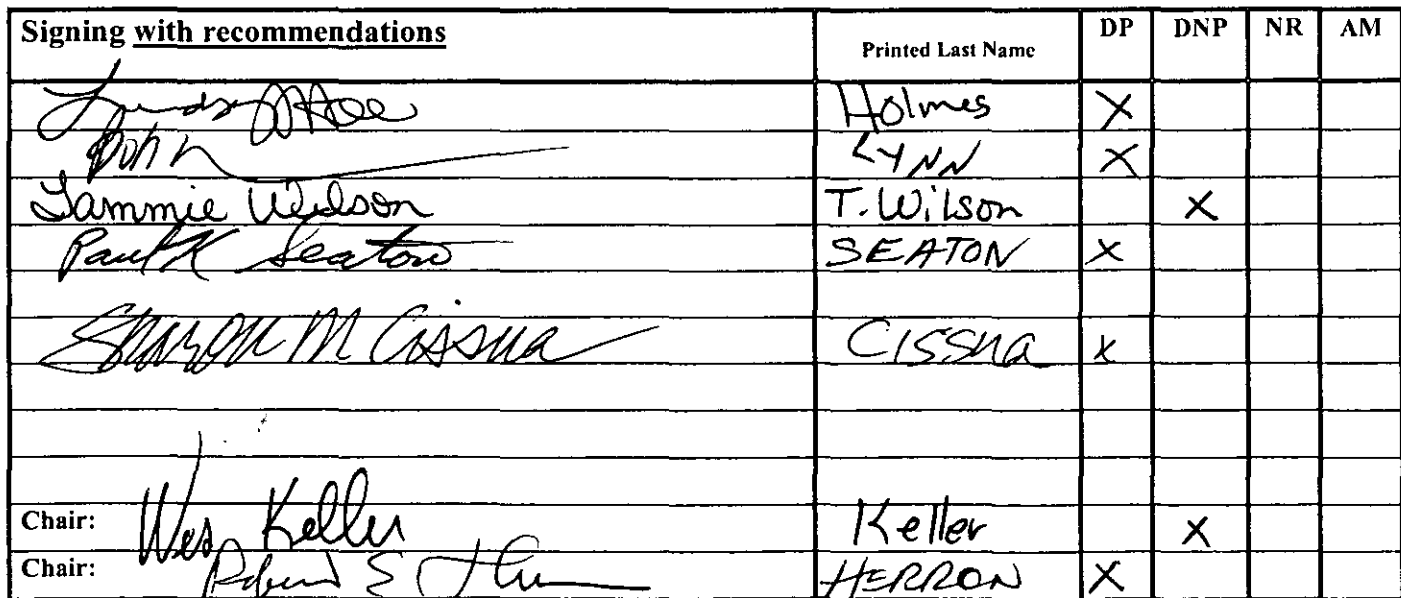 Signing with recommendations Printed Last Name DP DNP NR AM
Holmes X
LYNN X
Tammie Wilson T. Wilson X
Paul K Seaton SEATON X
Sharon M Cissna CISSna X
Chair: Wes Keller Keller X
Chair: HERRON X